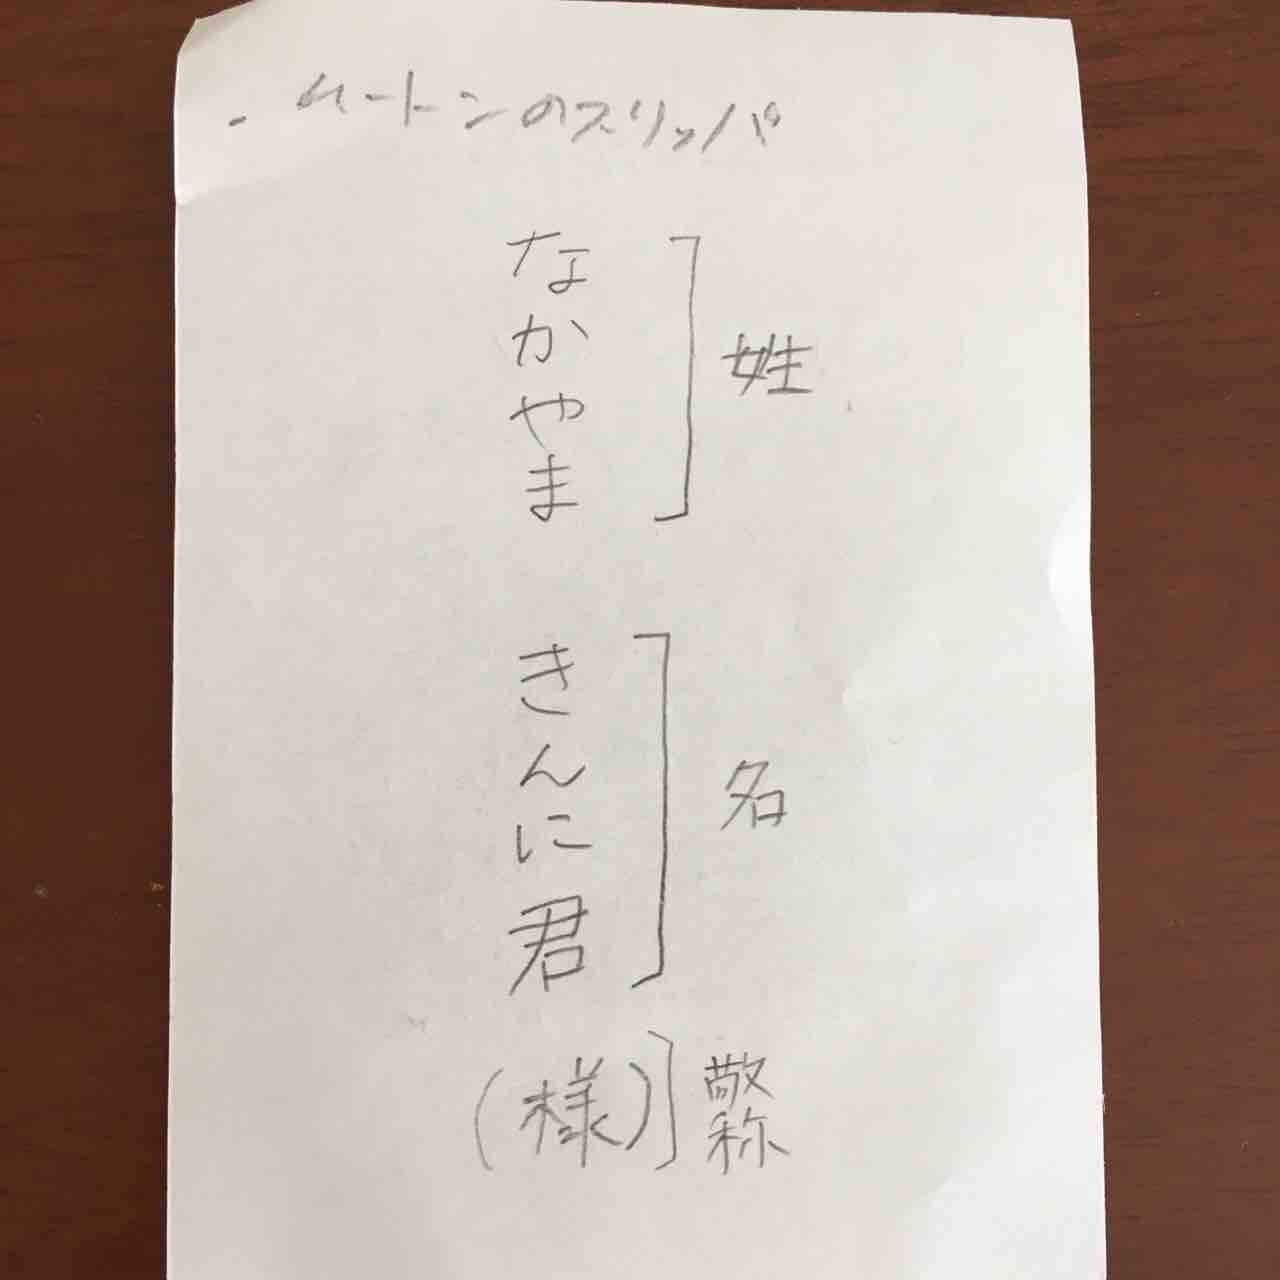 ・ムートンのスリッパ
なかやま
姓
きんに君
名
(様)
敬称